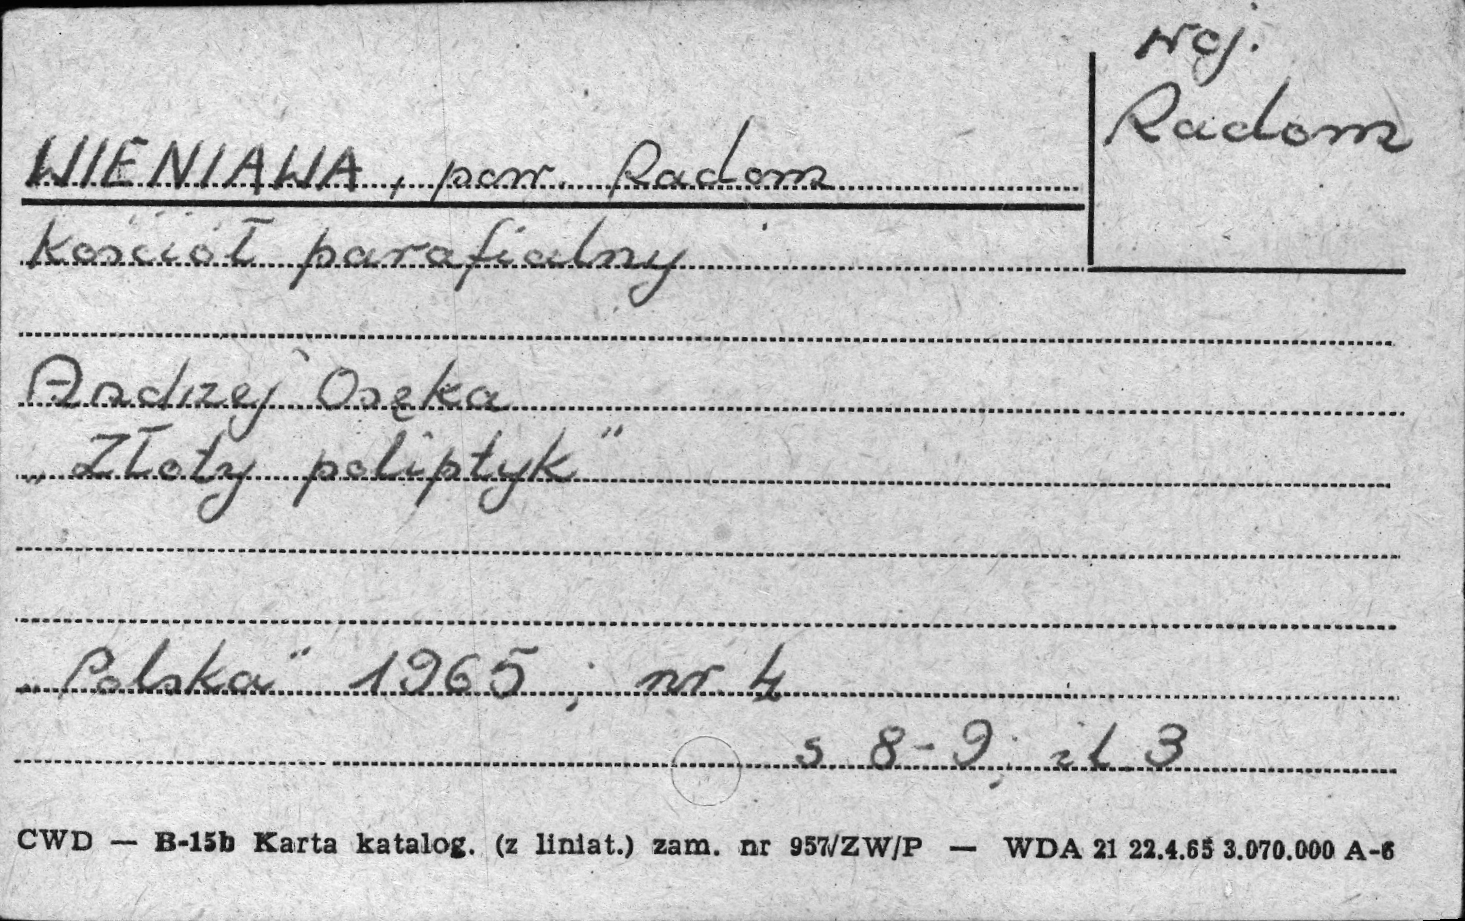 woj.
Radom
WIENIAWA, pow. Radom
kościół parafialny
Andrzej Osęka
„Złoty poliptyk"
„Polska" 1965; nr 4
s 8-9; il. 3
CWD — B-15b Karta katalog. (z liniat.) zam. nr 957/ZW/P — WDA 21 22.4.65 3.070.000 A-6